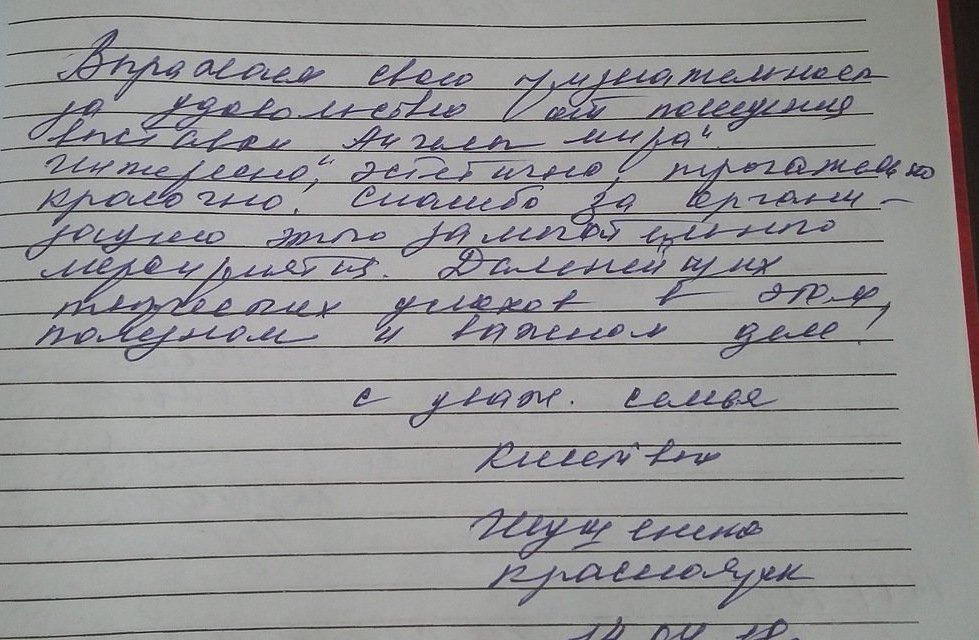 Выражаем свою признательность
за удовольствие от посещения
выставки "Ангелы мира".
Интересно, эстетично, трогательно
красочно. Спасибо за органи-
зацию этого замечательного
мероприятия. Дальнейших
творческих успехов в этом,
полезном и важном деле!
с уваж. семья
Ищенко
Красноярск
14.04.18